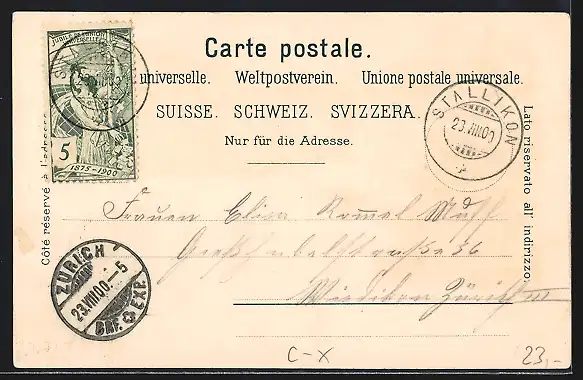 JUBILÉ DE L'UNION POSTALE UNIVERSELLE
5
1875-1900
Carte postale.
universelle. Weltpostverein. Unione postale universale.
SUISSE. SCHWEIZ. SVIZZERA.
Nur für die Adresse.
STALLIKON
23.VIII.00
Côté réservé à l'adresse
Lato riservato all' indirizzo
Frauen Elisa
Wiedikon Zürich III
ZÜRICH
23.VIII.00 - 5
BRF. EXP.
C-X
23,-